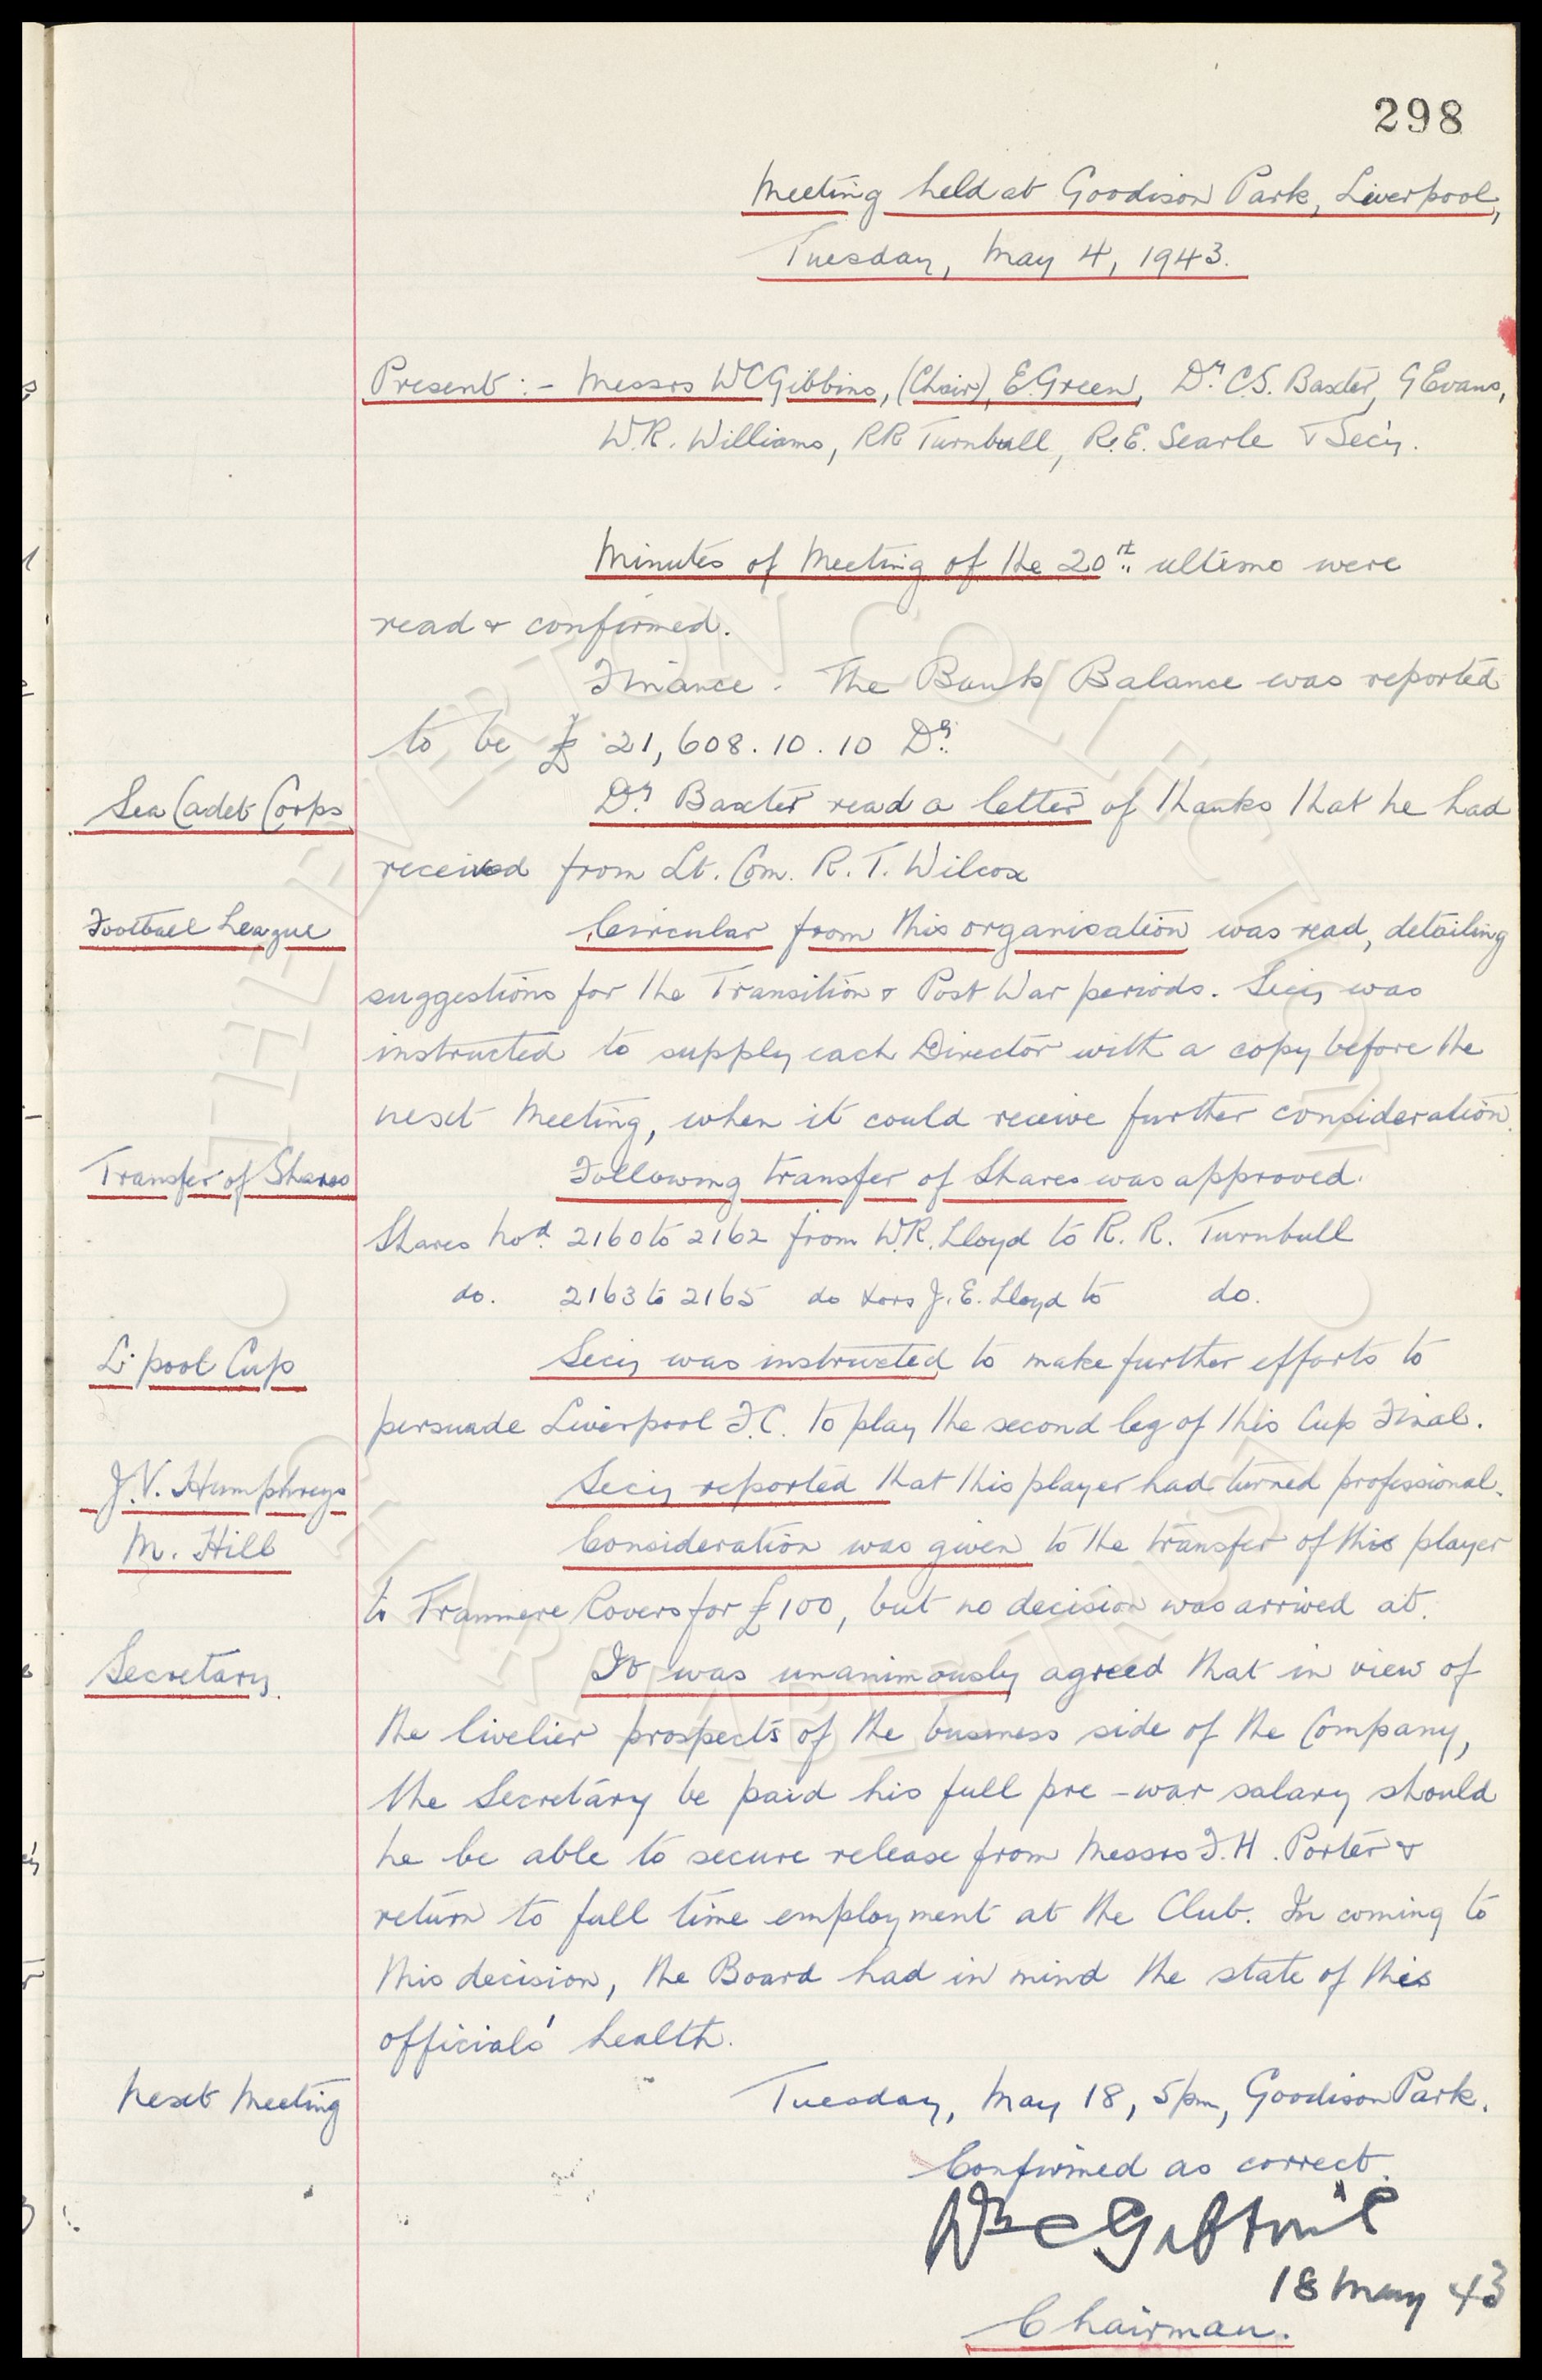 298
Meeting held at Goodison Park, Liverpool,
Tuesday, May 4, 1943.
Present:- Messrs WCGibbins, (Chair), E.Green, Dr. C.S. Baxter, G Evans,
W.R. Williams, RR Turnbull, R.E. Searle & Secy.
Minutes of Meeting of the 20th. ultimo were
read & confirmed.
Finance. The Bank Balance was reported
to be £ 21,608.10.10 Dr.
Sea Cadet Corps
Dr Baxter read a letter of thanks that he had
received from Lt. Com. R. T. Wilcox
Football League
Circular from this organisation was read, detailing
suggestions for the Transition & Post War periods. Secy was
instructed to supply each Director with a copy before the
next Meeting, when it could receive further consideration.
Transfer of Shares
Following transfer of Shares was approved.
Shares nod. 2160 to 2162 from W.R. Lloyd to R. R. Turnbull
do. 2163 to 2165 do J.E. Lloyd to do.
L'pool Cup
Secy was instructed to make further efforts to
persuade Liverpool F.C. to play the second leg of this Cup Final.
J.V. Humphreys
Secy reported that this player had turned professional.
M. Hill
Consideration was given to the transfer of this player
to Tranmere Rovers for £100, but no decision was arrived at.
Secretary.
It was unanimously agreed that in view of
the livelier prospects of the business side of the Company,
the Secretary be paid his full pre-war salary should
he be able to secure release from Messrs F.H. Porter &
return to full time employment at the Club. In coming to
this decision, the Board had in mind the state of this
officials' health.
Next Meeting
Tuesday, May 18, 5pm, Goodison Park.
Confirmed as correct.
Wm C Gibbins
18 May 43
Chairman.